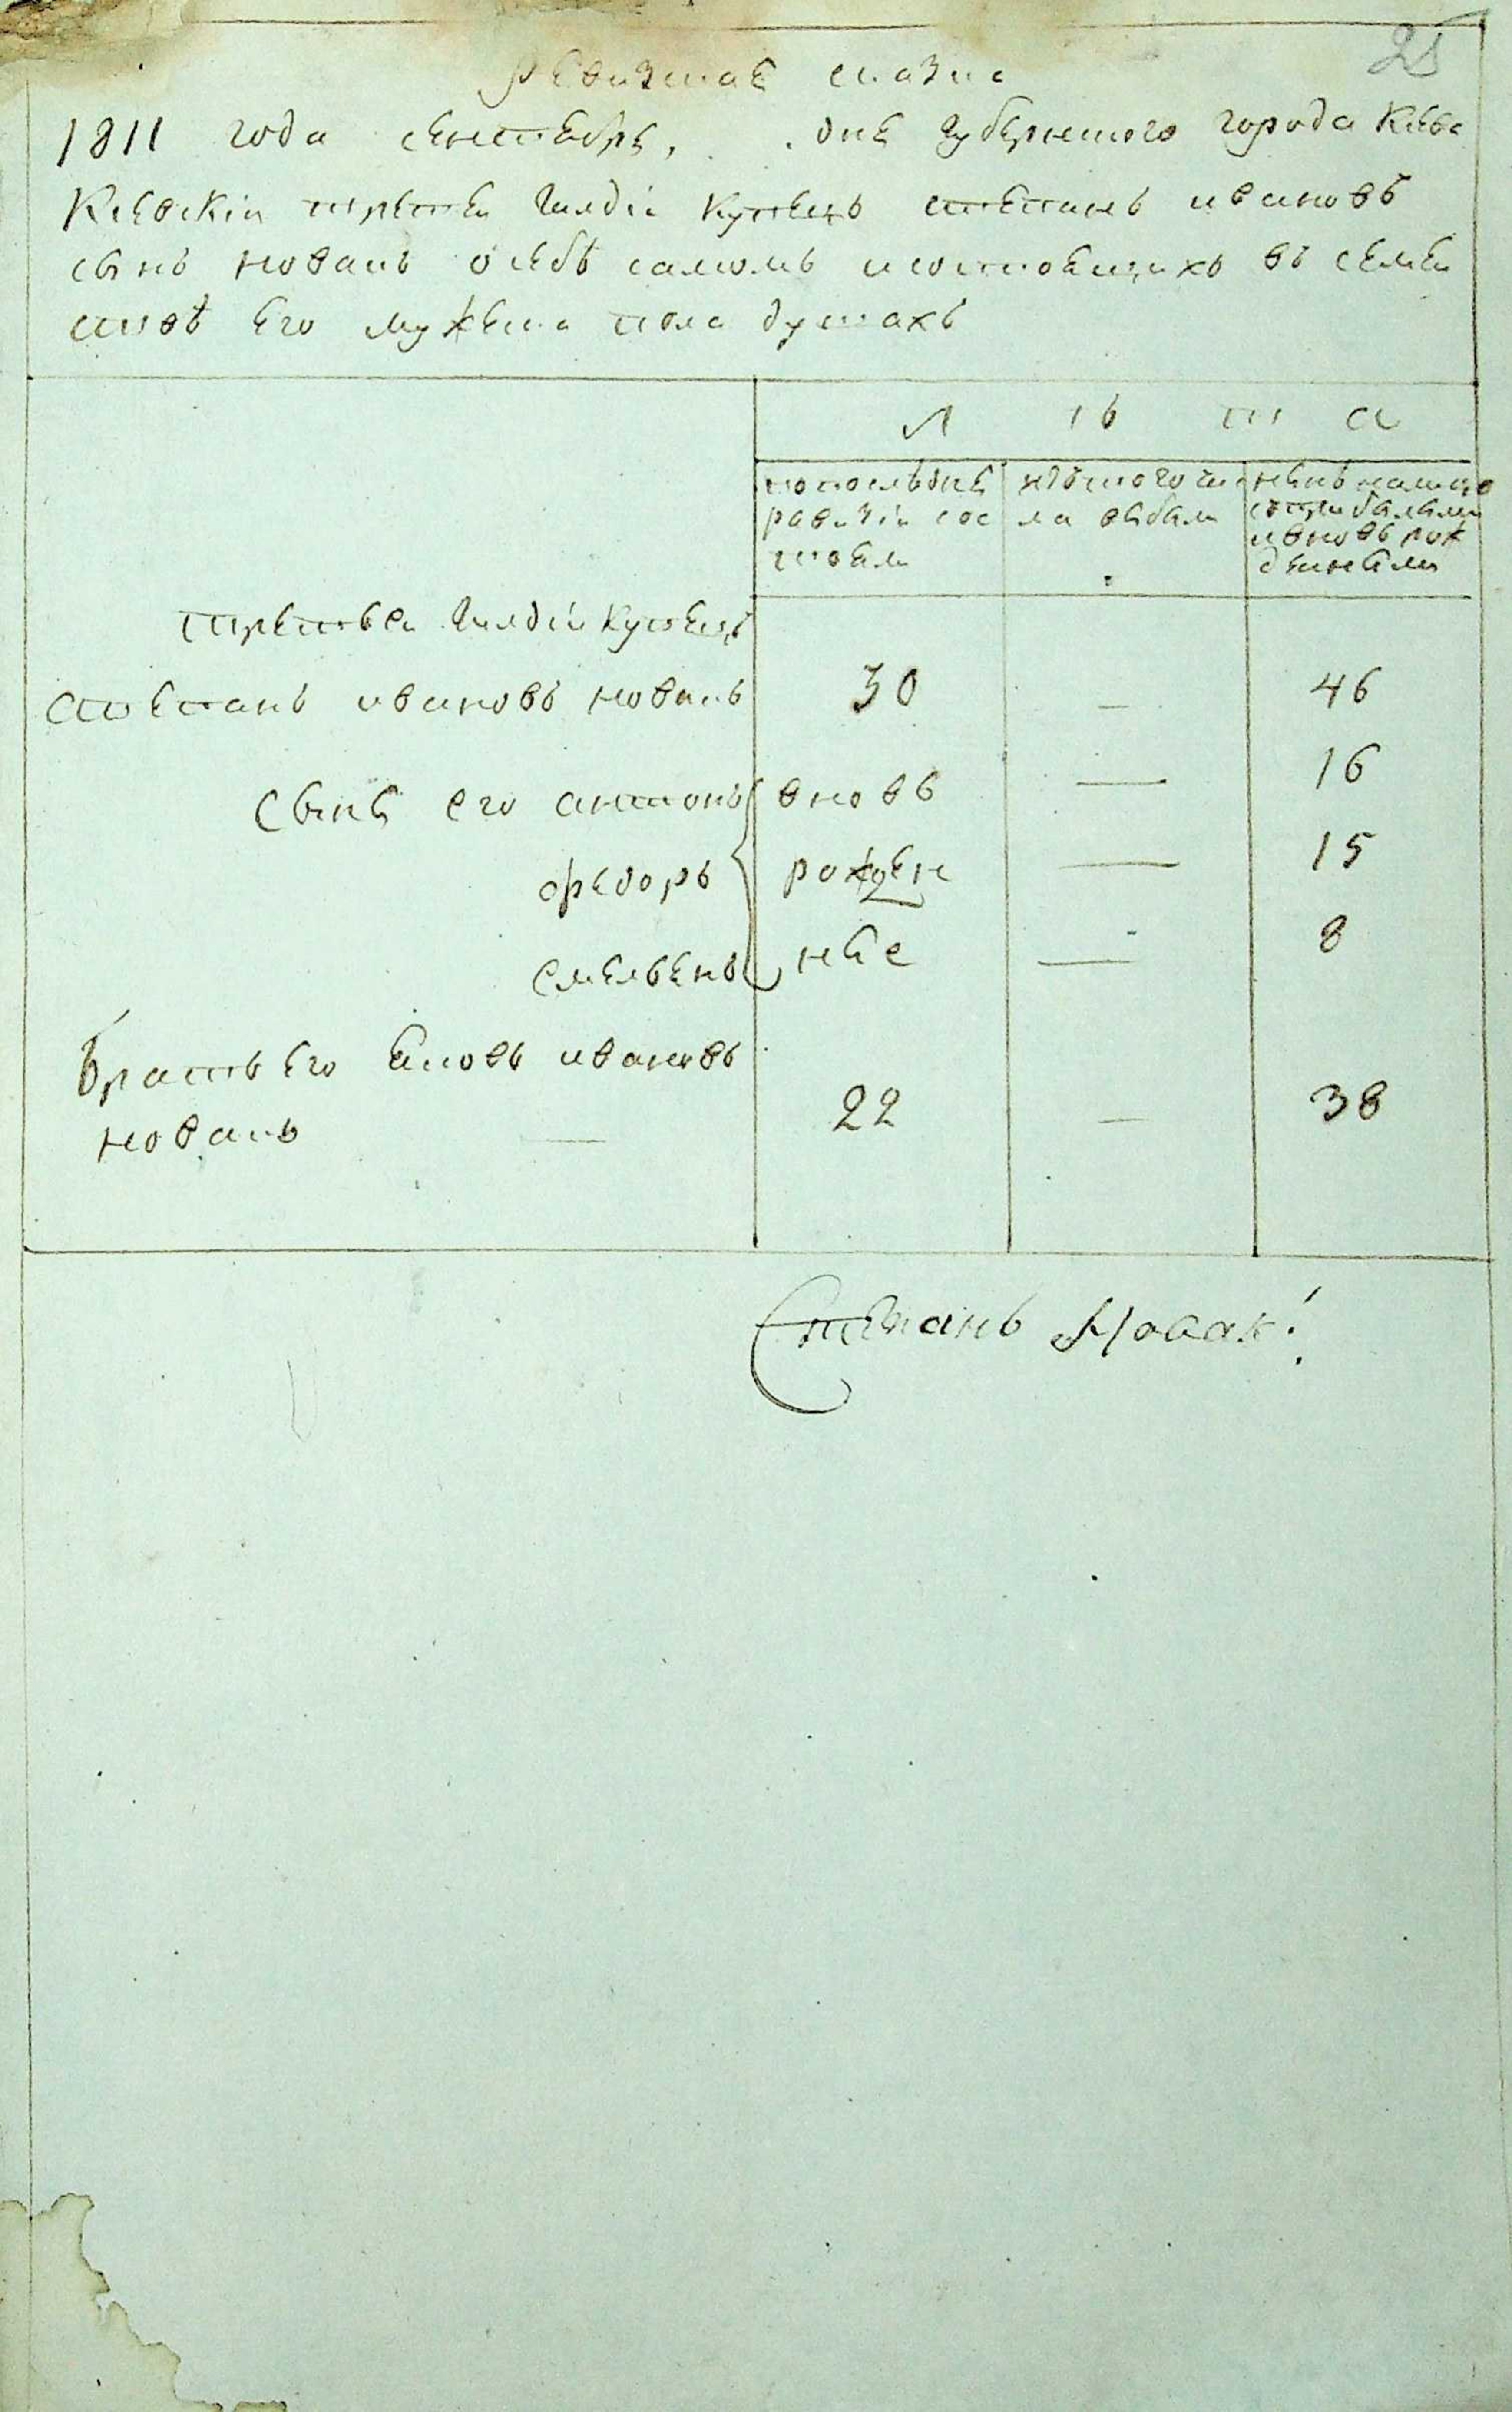 25
ревизская сказка
1811 года сентебря, . дня губернского города Киева
Киевскій третей гилдіи купецъ степанъ ивановъ
сынъ новакъ о себѣ самомъ и состоящихъ въ семей
ствѣ его мужеска пола душахъ
л ѣ т а
попоследней
ревизіи сос
тояли
изъ того чи
сла выбыли
нынѣ налицо
с прибылыми
и вновь рож
денными
третьей гилдіи купецъ
степанъ ивановъ новакъ 30 — 46
сынъ его антонъ вновь — 16
федоръ рожден — 15
емельенъ ные — 8
братъ его яковъ ивановъ
новакъ — 22 — 38
Степанъ Новак!